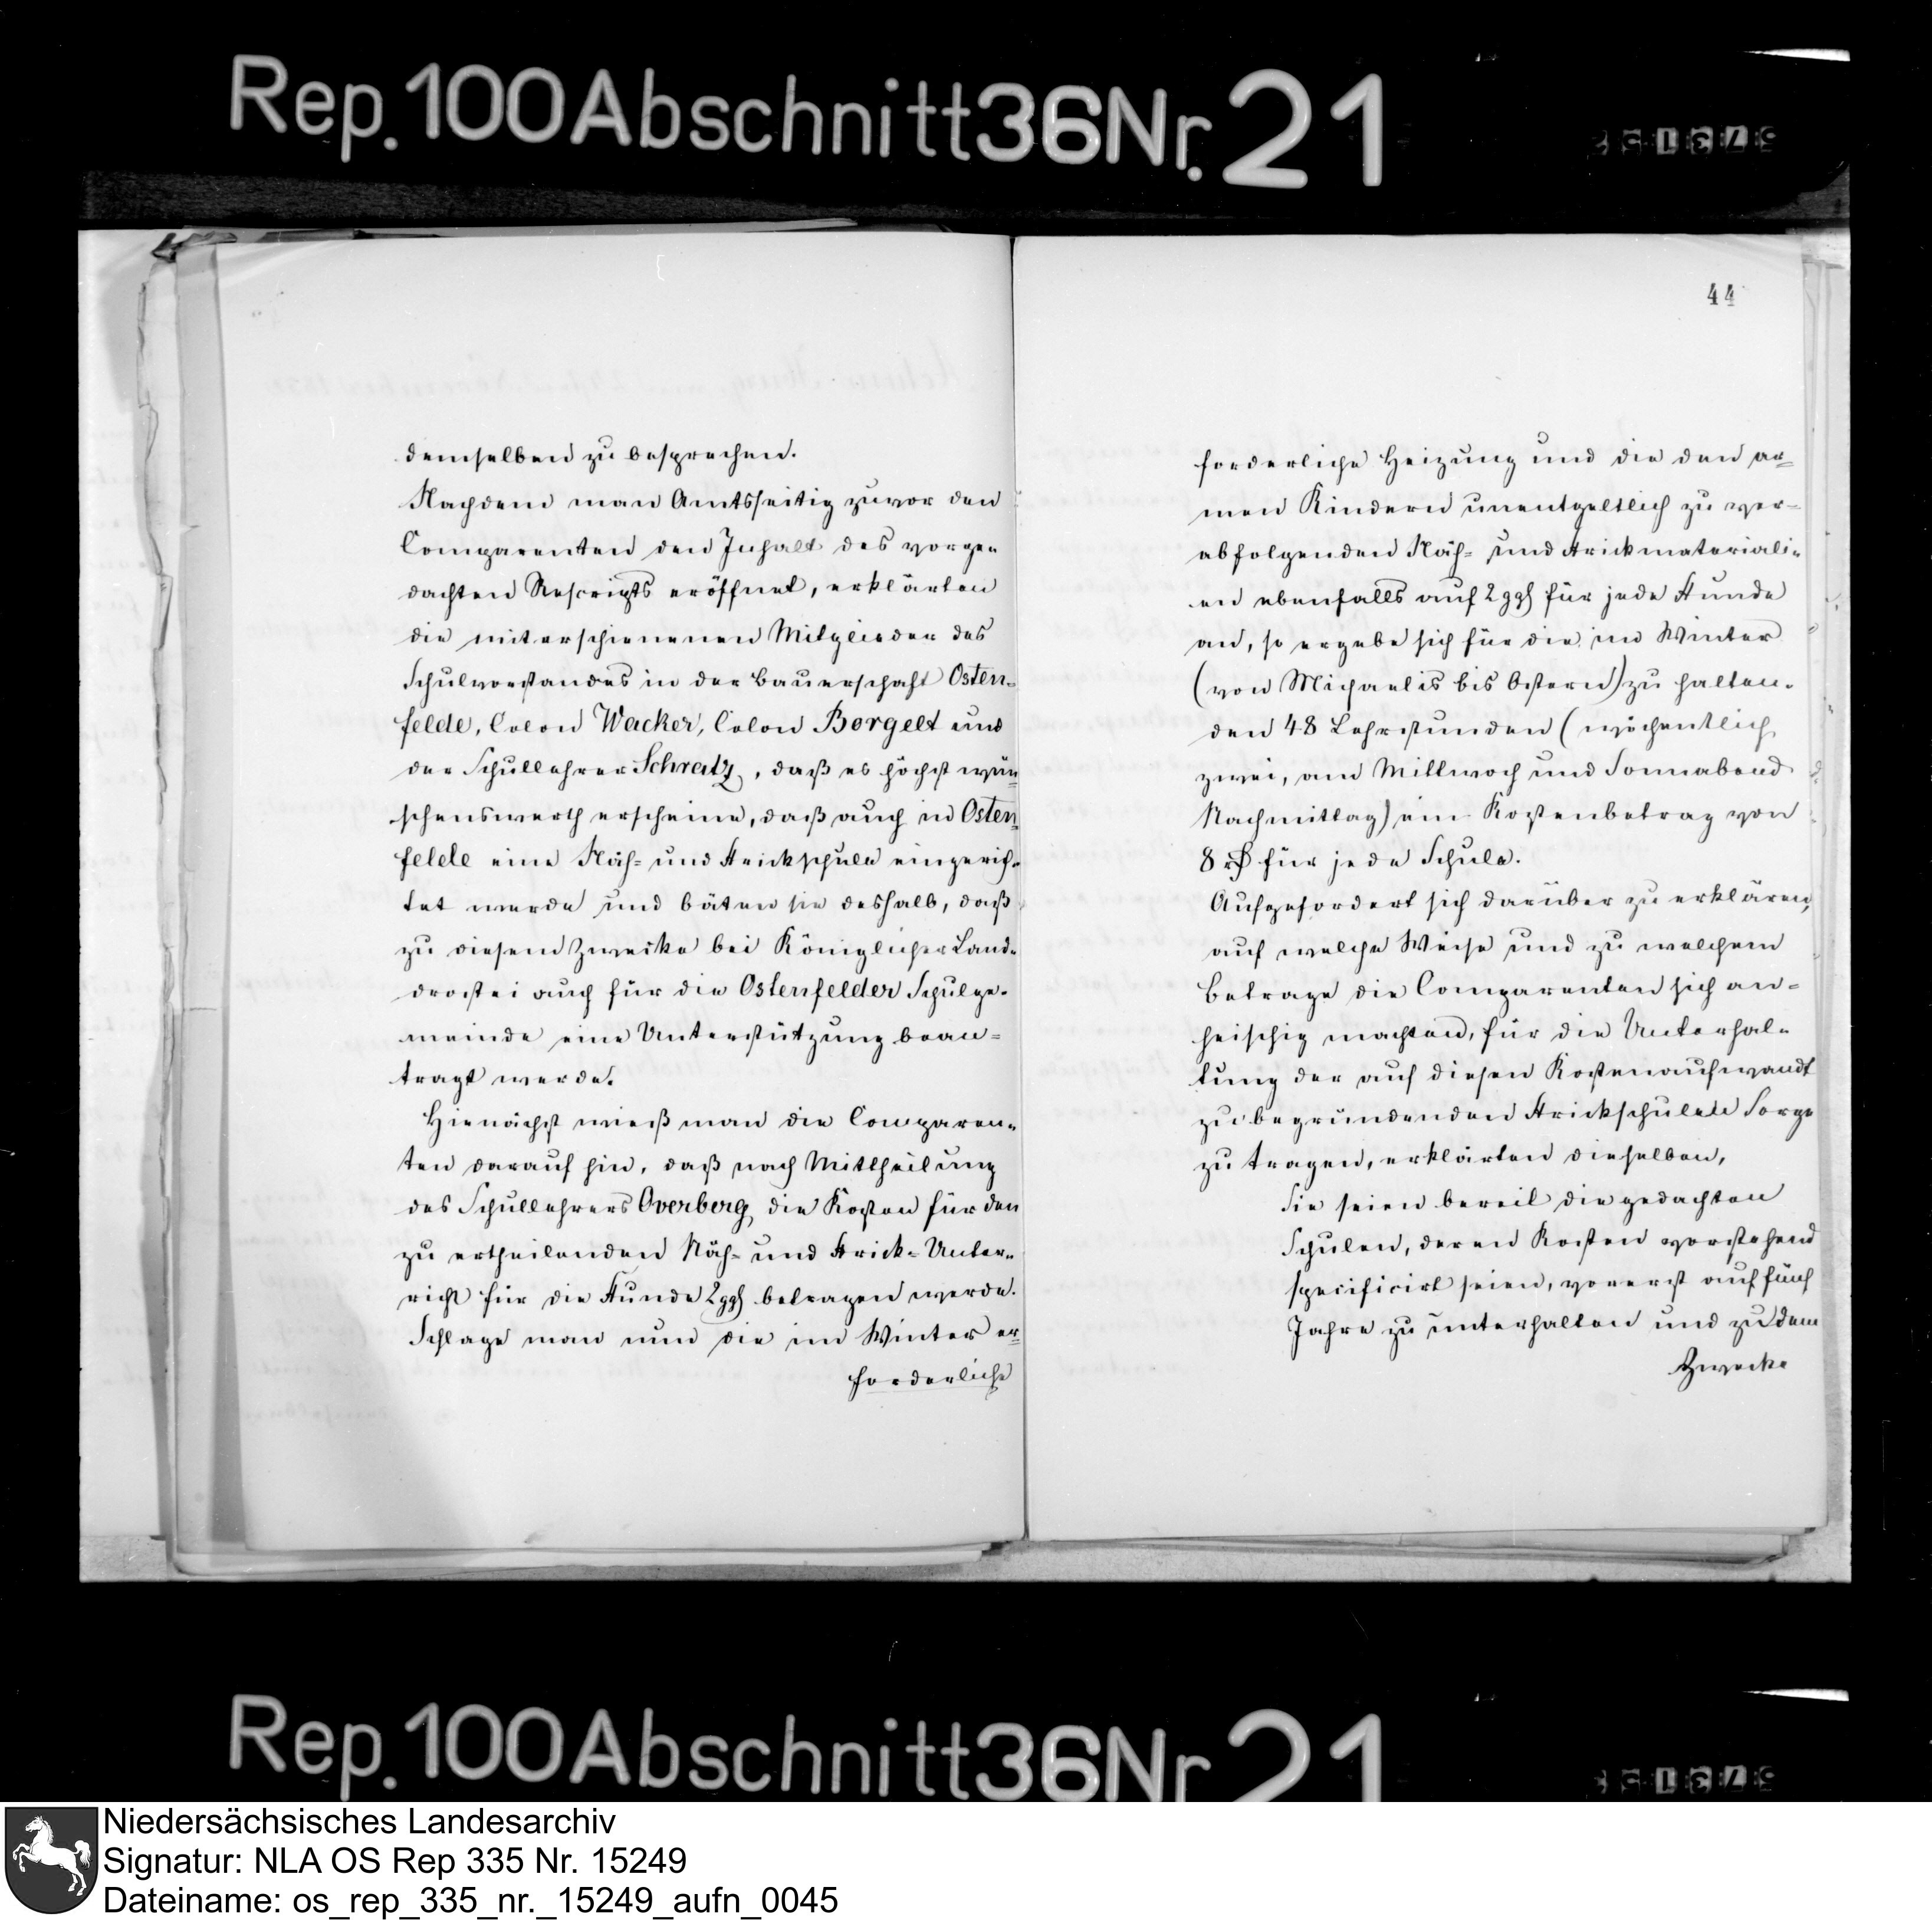 Rep. 100 Abschnitt 36 Nr. 21
demselben zu besprechen.
Nachdem man Amtsseitig zuvor den
Comparenten den Inhalt des vorge-
dachten Rescripts eröffnet, erklärten
die miterschienenen Mitglieder des
Schulvorstandes in der Bauerschaft Osten-
felde, Colon Wacker, Colon Borgelt und
der Schullehrer Schreatz, daß es höchst wün-
schenswerth erscheine, daß auch in Osten-
felde eine Näh- und Strickschule eingerich-
tet werde und bäten sie deshalb, daß
zu diesem Zwecke bei Königlicher Land-
drostei auch für die Ostenfelder Schulge-
meinde eine Unterstützung bean-
tragt werde.
Hienächst wieß man die Comparen-
ten darauf hin, daß nach Mittheilung
des Schullehrers Overberg die Kosten für den
zu ertheilenden Näh- und Strick-Unter-
richt für die Stunde 2 ggl betragen werde.
Schlage man nun die im Winter er-
forderliche
44
forderliche Heizung und die den ar-
men Kindern unentgeltlich zu ver-
abfolgenden Näh- und Strickmateriali-
en ebenfalls auf 2 ggl für jede Stunde
an, so ergebe sich für die im Winter
(von Michaelis bis Ostern) zu halten-
den 48 Lehrstunden (wöchentlich
zwei, am Mittwoch und Sonnabend
Nachmittag) ein Kostenbetrag von
8 rß für jede Schule.
Aufgefordert sich darüber zu erklären,
auf welche Weise und zu welchem
Betrage die Comparenten sich an-
heischig machten, für die Unterhal-
tung der auf diesen Kostenaufwandt
zu begründenden Strickschulen Sorge
zu tragen, erklärten dieselben,
Sie seien bereit die gedachten
Schulen, deren Kosten vorstehend
specificirt seien, vorerst auf fünf
Jahre zu unterhalten und zu dem
Zwecke
Rep. 100 Abschnitt 36 Nr 21
Niedersächsisches Landesarchiv
Signatur: NLA OS Rep 335 Nr. 15249
Dateiname: os_rep_335_nr._15249_aufn_0045